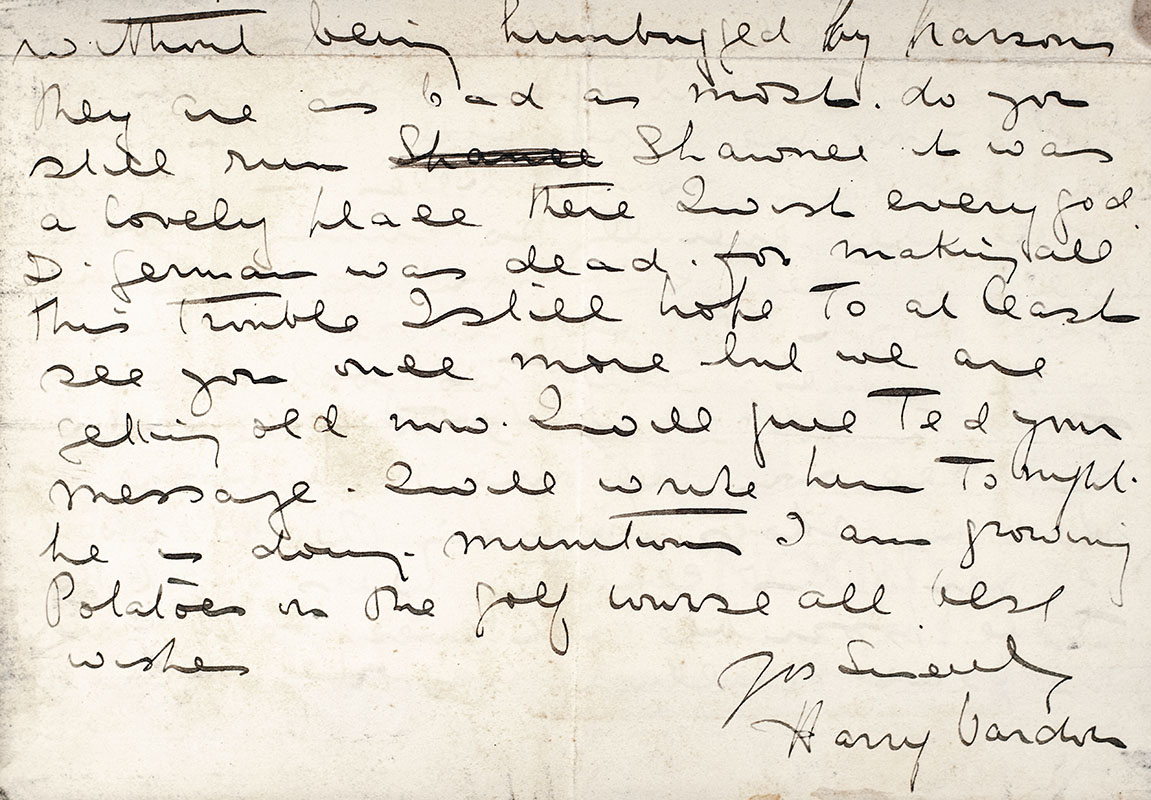 without being humbugged by parsons
they are as bad as most. do you
still run Shawnee Shawnee it was
a lovely place there I wish every god
D. german was dead. for making all
this trouble I still hope to at least
see you once more but we are
getting old now. I will give Ted your
message. I will write him To night.
he is doing munitions I am growing
Potatoes on the golf course all best
wishes
Yrs Sincerely
Harry Vardon